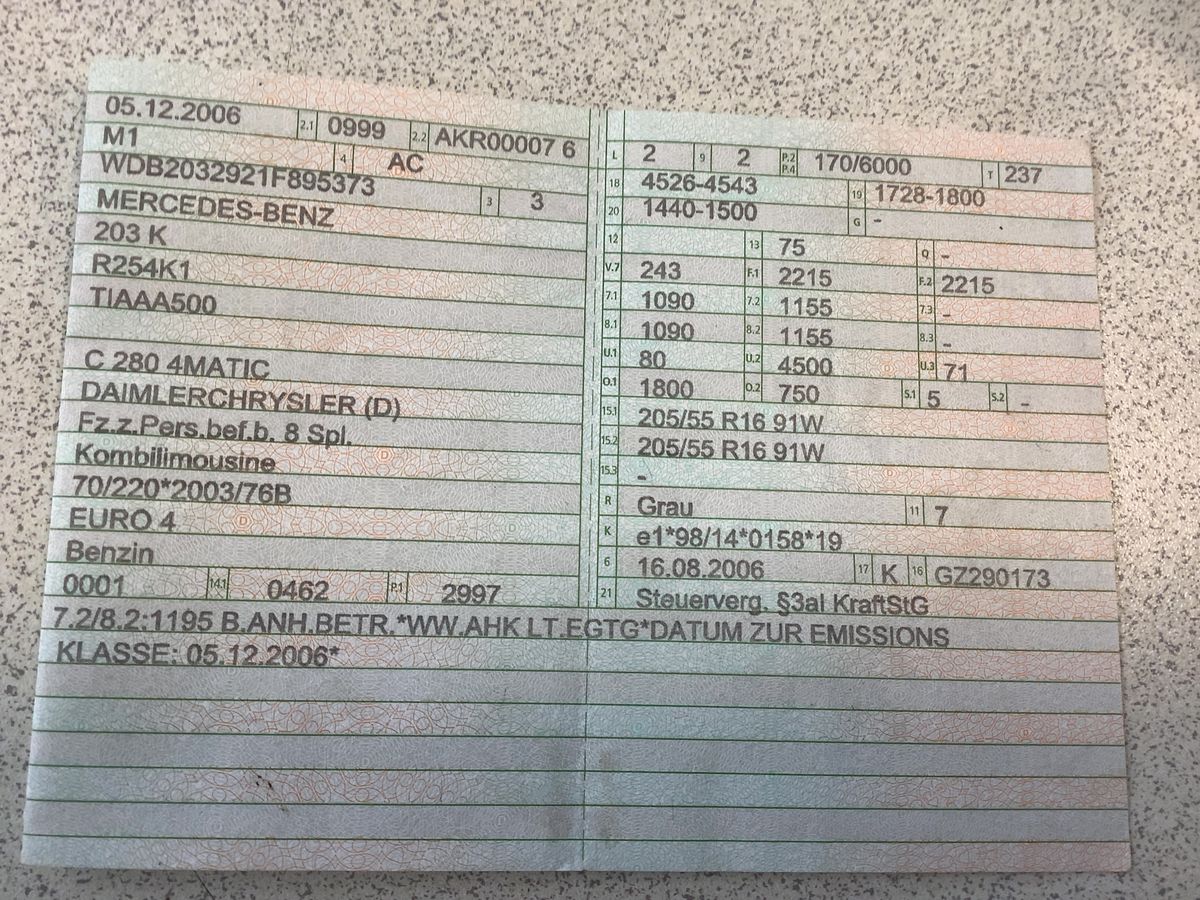 05.12.2006 2.1 0999 2.2 AKR00007 6
M1 4 AC
WDB2032921F895373 3 3
MERCEDES-BENZ
203 K
R254K1
TIAAA500
C 280 4MATIC
DAIMLERCHRYSLER (D)
Fz.z.Pers.bef.b. 8 Spl.
Kombilimousine
70/220*2003/76B
EURO 4
Benzin
0001 14.1 0462 P.1 2997
L 2 9 2 P.2 P.4 170/6000 T 237
18 4526-4543 19 1728-1800
20 1440-1500 G -
12 13 75 Q -
V.7 243 F.1 2215 F.2 2215
7.1 1090 7.2 1155 7.3 -
8.1 1090 8.2 1155 8.3 -
U.1 80 U.2 4500 U.3 71
O.1 1800 O.2 750 S.1 5 S.2 -
15.1 205/55 R16 91W
15.2 205/55 R16 91W
15.3 -
R Grau 11 7
K e1*98/14*0158*19
6 16.08.2006 17 K 16 GZ290173
21 Steuerverg. §3al KraftStG
7.2/8.2:1195 B.ANH.BETR.*WW.AHK LT.EGTG*DATUM ZUR EMISSIONS
KLASSE: 05.12.2006*